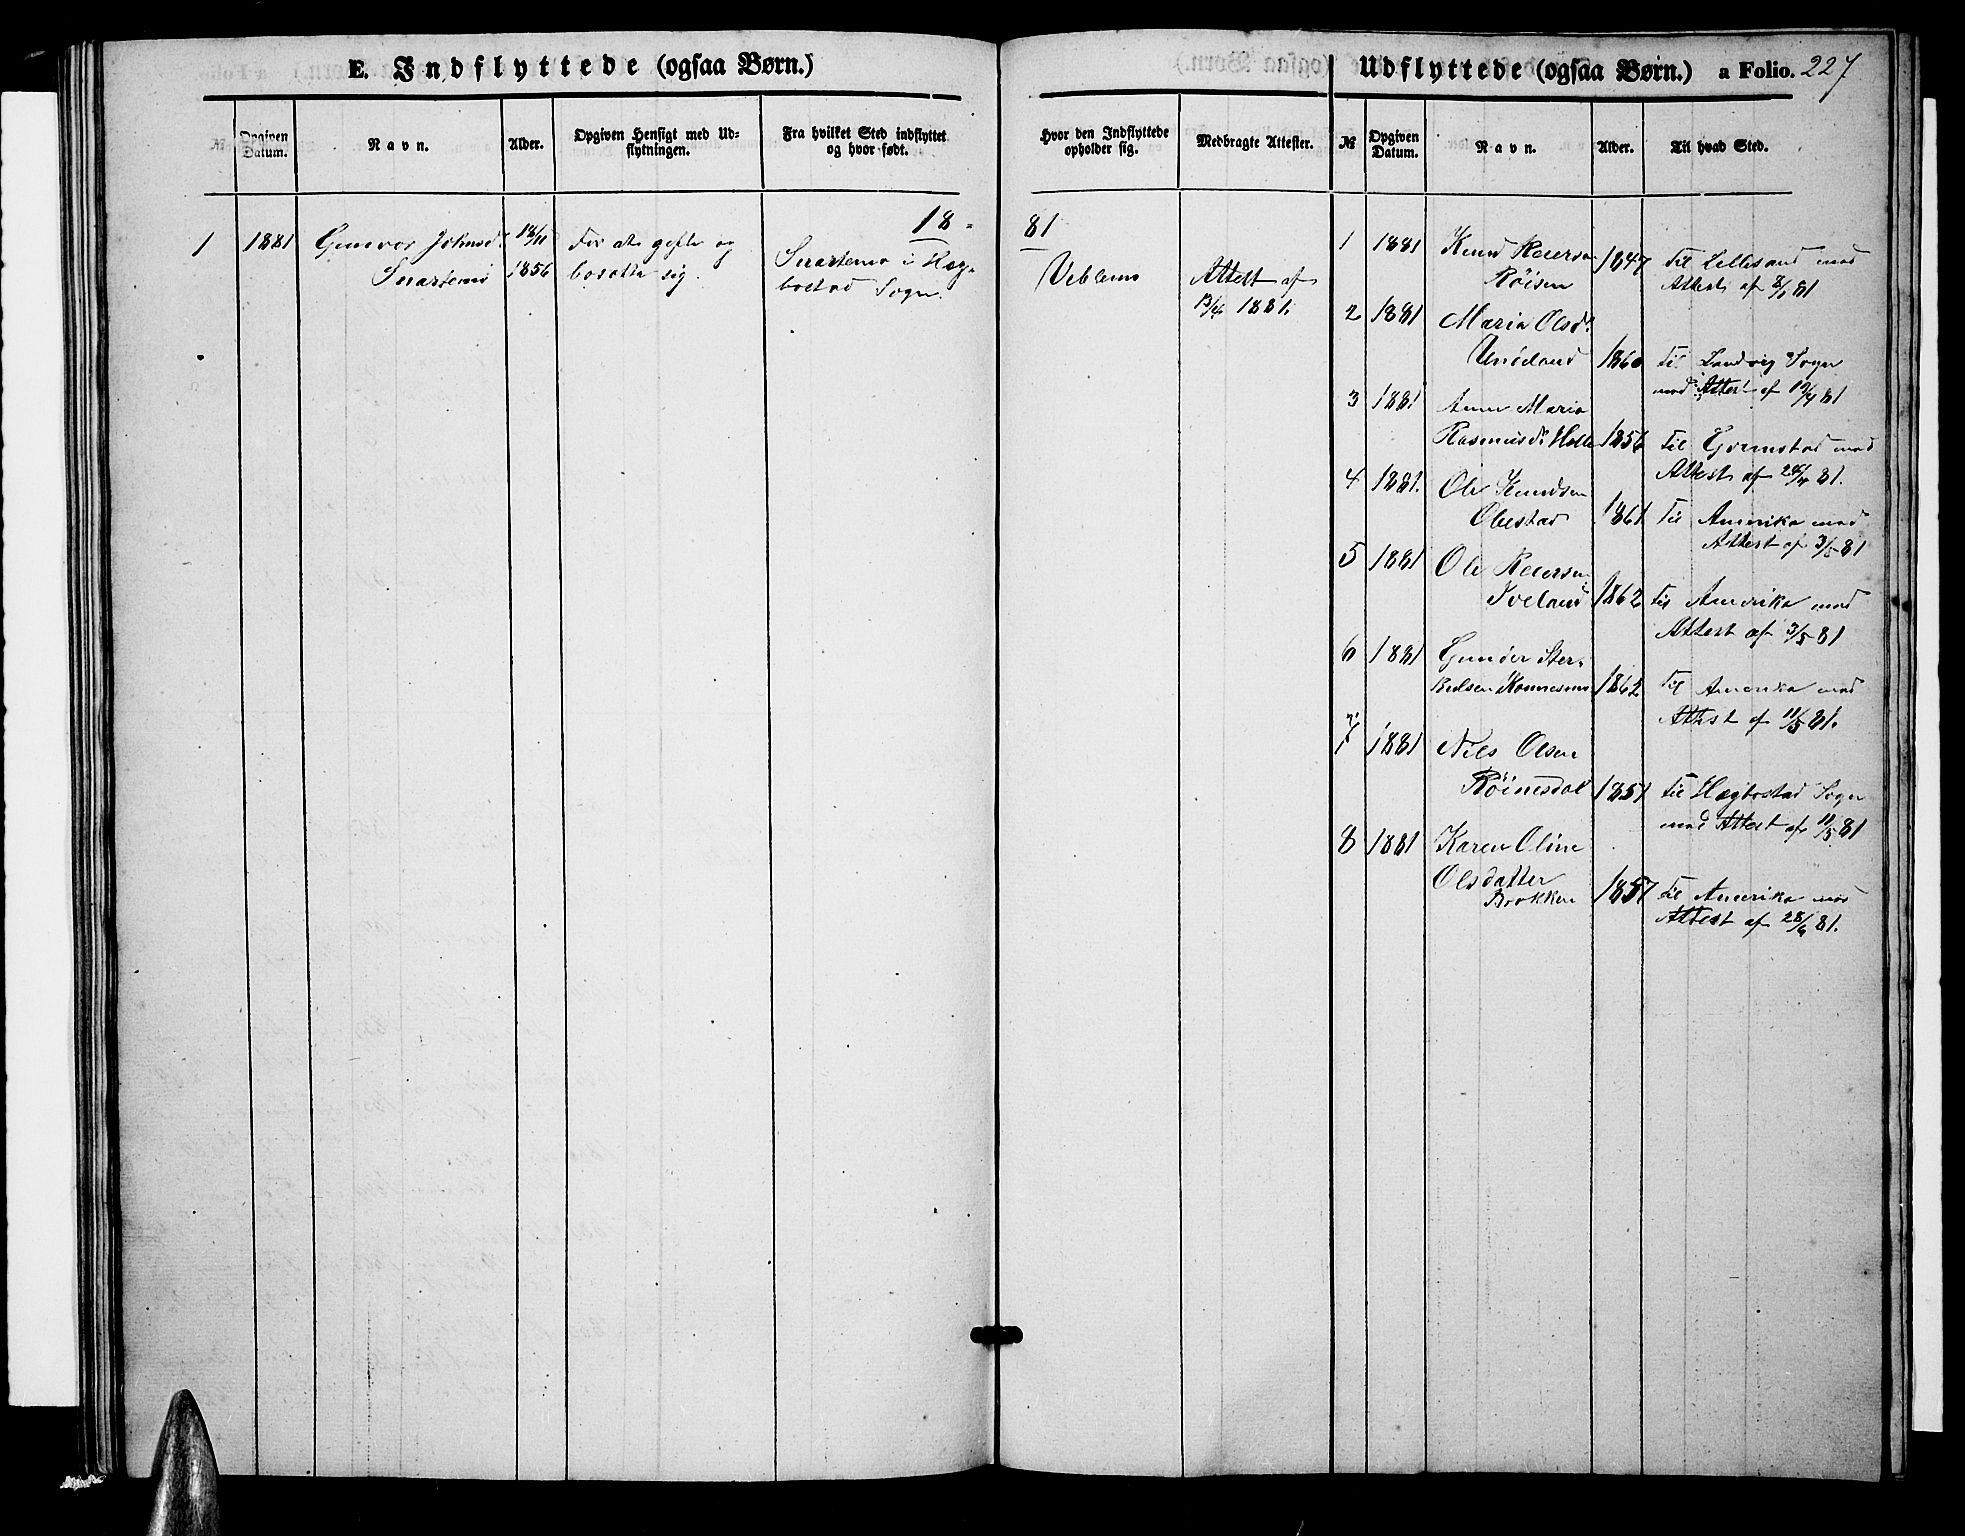 E. Indflyttede (ogsaa Børn.)
№
Opgiven Datum.
Navn.
Alder.
Opgiven Hensigt med Udflytningen.
Fra hvilket Sted indflyttet og hvor født.
18-
1 1881 Gunvor Johnsd. 18/11 For at gifte og Snartemo i Hæg-
Snartemo 1856 bosætte sig. bostad Sogn.
Udflyttede (ogsaa Børn.) a Folio. 227
Hvor den Indflyttede opholder sig.
Medbragte Attester.
№
Opgiven Datum.
Navn.
Alder.
Til hvad Sted.
81
Attest af
1881.
1 1881 Knud Reiersen 1847 Til Lillesand med
Røisen Attest af 81
2 1881 Maria Olsd.
1860 Til Landvig Sogn
med Attest af 19/4 81
3 1881 Anne Maria
Rasmusd. Holte 1856 Til med
Attest af 24/4 81.
4 1881. Ole Knudsen
Obestad 1861 Til Amerika med
Attest af 3/5 81
5 1881 Ole Reiersen
Iveland 1862 Til Amerika med
Attest af 3/5 81
6 1881 Gunder Ster-
1862 Til Amerika med
Attest af 11/5 81.
7 1881 Nils Olsen
Røinesdal 1857 Til Hægbostad Sogn
med Attest af 11/5 81
8 1881 Karen Oline
Olsdatter
Brokken 1857 Til Amerika med
Attest af 28/6 81.